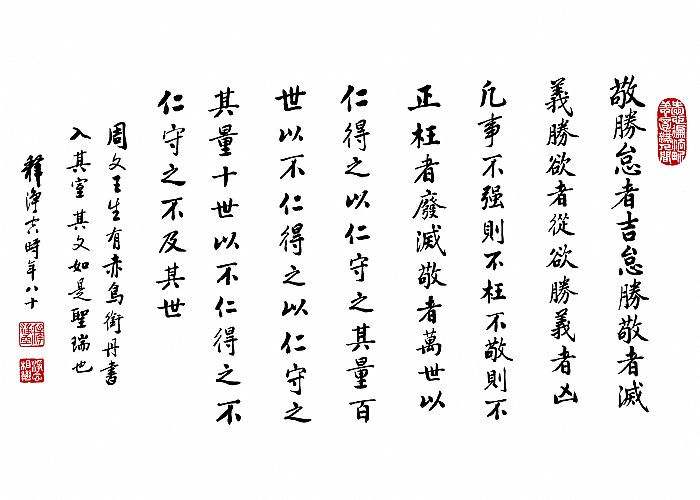 敬勝怠者吉怠勝敬者滅
義勝欲者從欲勝義者凶
凡事不强則不枉不敬則不
正枉者廢滅敬者萬世以
仁得之以仁守之其量百
世以不仁得之以仁守之
其量十世以不仁得之不
仁守之不及其世
周文王生有赤鳥銜丹書
入其室其文如是聖瑞也
釋淨空時年八十